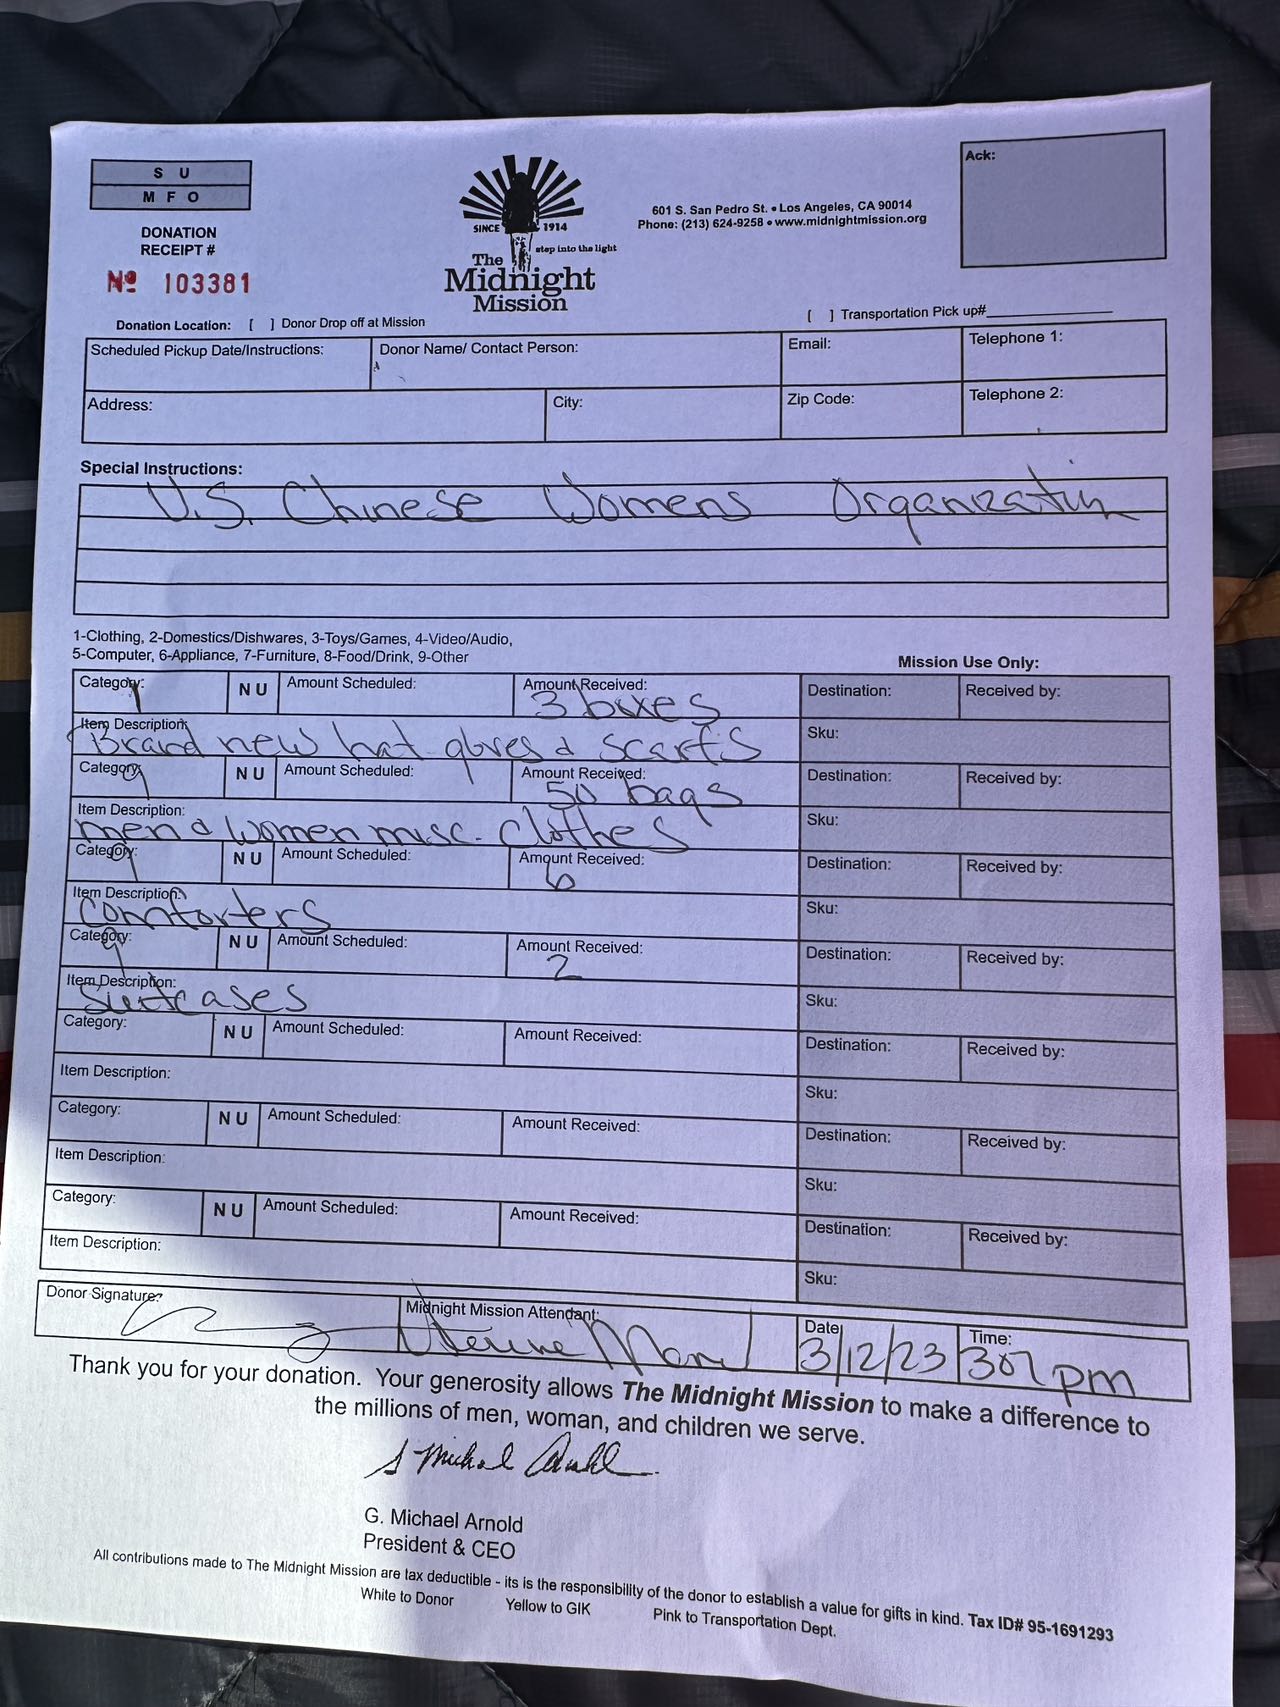 S U
M F O
DONATION
RECEIPT #
Nº 103381
SINCE 1914
step into the light
The
Midnight
Mission
601 S. San Pedro St. • Los Angeles, CA 90014
Phone: (213) 624-9258 • www.midnightmission.org
Ack:
Donation Location: [ ] Donor Drop off at Mission
[ ] Transportation Pick up#
Scheduled Pickup Date/Instructions: Donor Name/ Contact Person: Email: Telephone 1:
Address: City: Zip Code: Telephone 2:
Special Instructions:
U.S. Chinese Womens Organization
1-Clothing, 2-Domestics/Dishwares, 3-Toys/Games, 4-Video/Audio,
5-Computer, 6-Appliance, 7-Furniture, 8-Food/Drink, 9-Other
Mission Use Only:
Category: N U Amount Scheduled: Amount Received: 3 boxes Destination: Received by:
Item Description: Brand new hat gloves & scarfs Sku:
Category: N U Amount Scheduled: Amount Received: 50 bags Destination: Received by:
Item Description: men & women misc. clothes Sku:
Category: 9 N U Amount Scheduled: Amount Received: 6 Destination: Received by:
Item Description: Comforters Sku:
Category: 9 N U Amount Scheduled: Amount Received: 2 Destination: Received by:
Item Description: Suitcases Sku:
Category: N U Amount Scheduled: Amount Received: Destination: Received by:
Item Description: Sku:
Category: N U Amount Scheduled: Amount Received: Destination: Received by:
Item Description: Sku:
Category: N U Amount Scheduled: Amount Received: Destination: Received by:
Item Description: Sku:
Donor Signature: Midnight Mission Attendant: Date: 3/12/23 Time: 307 pm
Thank you for your donation. Your generosity allows The Midnight Mission to make a difference to
the millions of men, woman, and children we serve.
G. Michael Arnold
President & CEO
All contributions made to The Midnight Mission are tax deductible - its is the responsibility of the donor to establish a value for gifts in kind. Tax ID# 95-1691293
White to Donor Yellow to GIK Pink to Transportation Dept.